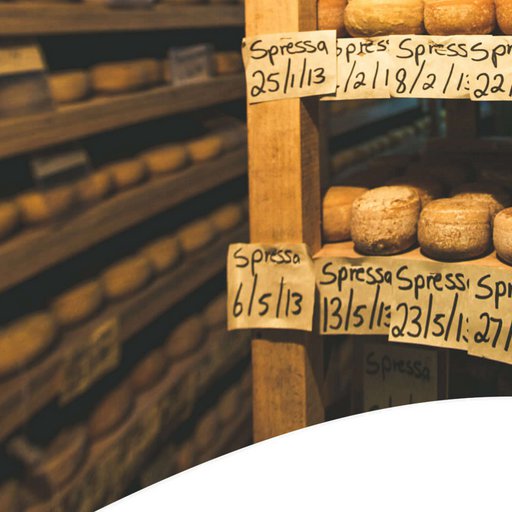 Spressa
25/1/13
Spress
8/2/13
Spr
22/
Spressa
6/5/13
Spressa
13/5/13
Spress
23/5/1
Spr
27/
Spressa